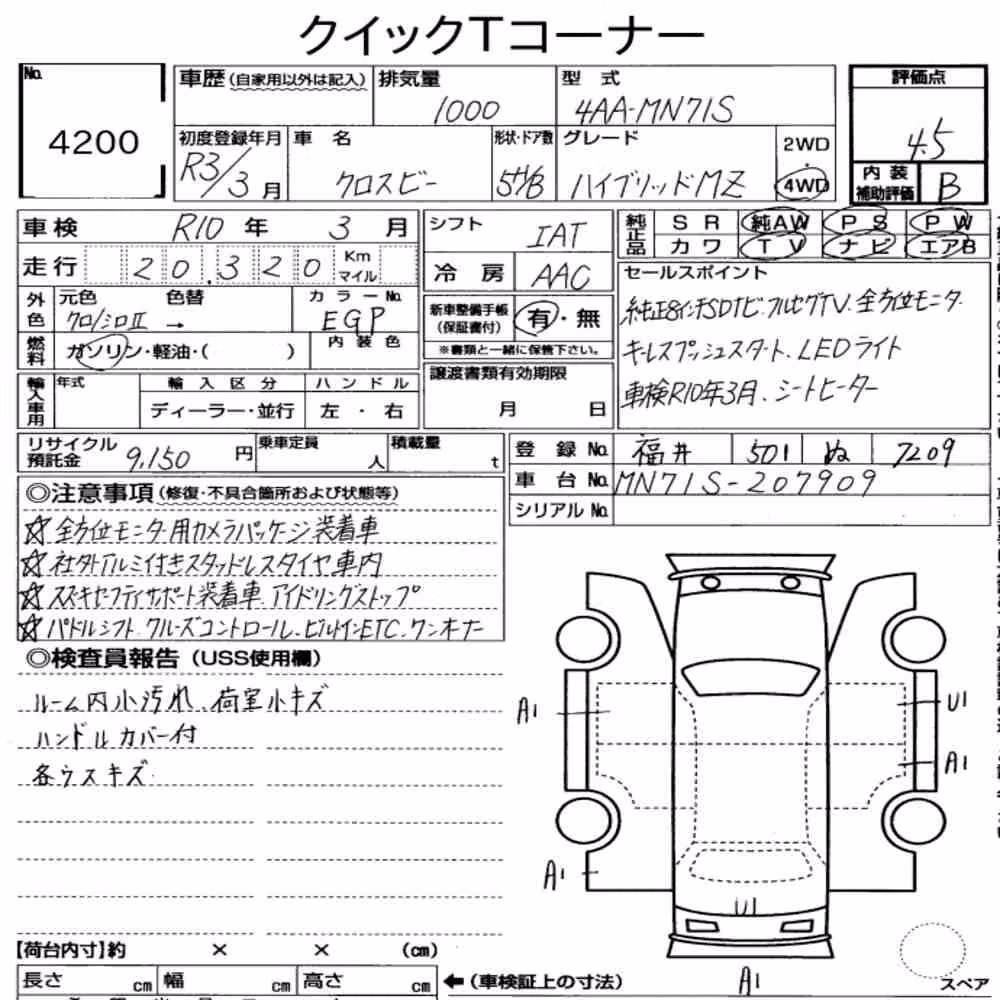 クイックTコーナー
No.
4200
車歴 (自家用以外は記入)
排気量
1000
型式
4AA-MN71S
評価点
4.5
内装補助評価
B
初度登録年月
R3/3月
車名
クロスビー
形状・ドア数
5H/B
グレード
ハイブリッドMZ
2WD
4WD
車検 R10年 3月
走行 20,320 Km マイル
外色
元色 色替
クロ/シロII →
カラーNo.
EGP
燃料
ガソリン・軽油・( )
内装色
輸入車用
年式
輸入区分
ディーラー・並行
ハンドル
左・右
シフト
IAT
冷房
AAC
新車整備手帳(保証書付)
有・無
※書類と一緒に保管下さい。
譲渡書類有効期限
月 日
純正品
SR 純AW PS PW
カワ TV ナビ エアB
セールスポイント
純正8インチSDナビ.フルセグTV.全方位モニタ
キーレスプッシュスタート.LEDライト
車検R10年3月、シートヒーター
リサイクル預託金 9,150円
乗車定員 人
積載量 t
登録No. 福井 501 ぬ 7209
車台No. MN71S-207909
シリアルNo.
◎注意事項(修復・不具合箇所および状態等)
☆全方位モニター用カメラパッケージ装着車
☆社外アルミ付きスタッドレスタイヤ車内
☆スズキセーフティサポート装着車.アイドリングストップ
☆パドルシフト.クルーズコントロール.ビルトインETC.ワンオーナー
◎検査員報告(USS使用欄)
ルーム内小汚れ、荷室小キズ
ハンドルカバー付
各ウスキズ
A1
U1
A1
A1
U1
A1
スペア
【荷台内寸】約 × × (cm)
長さ cm 幅 cm 高さ cm
←(車検証上の寸法)